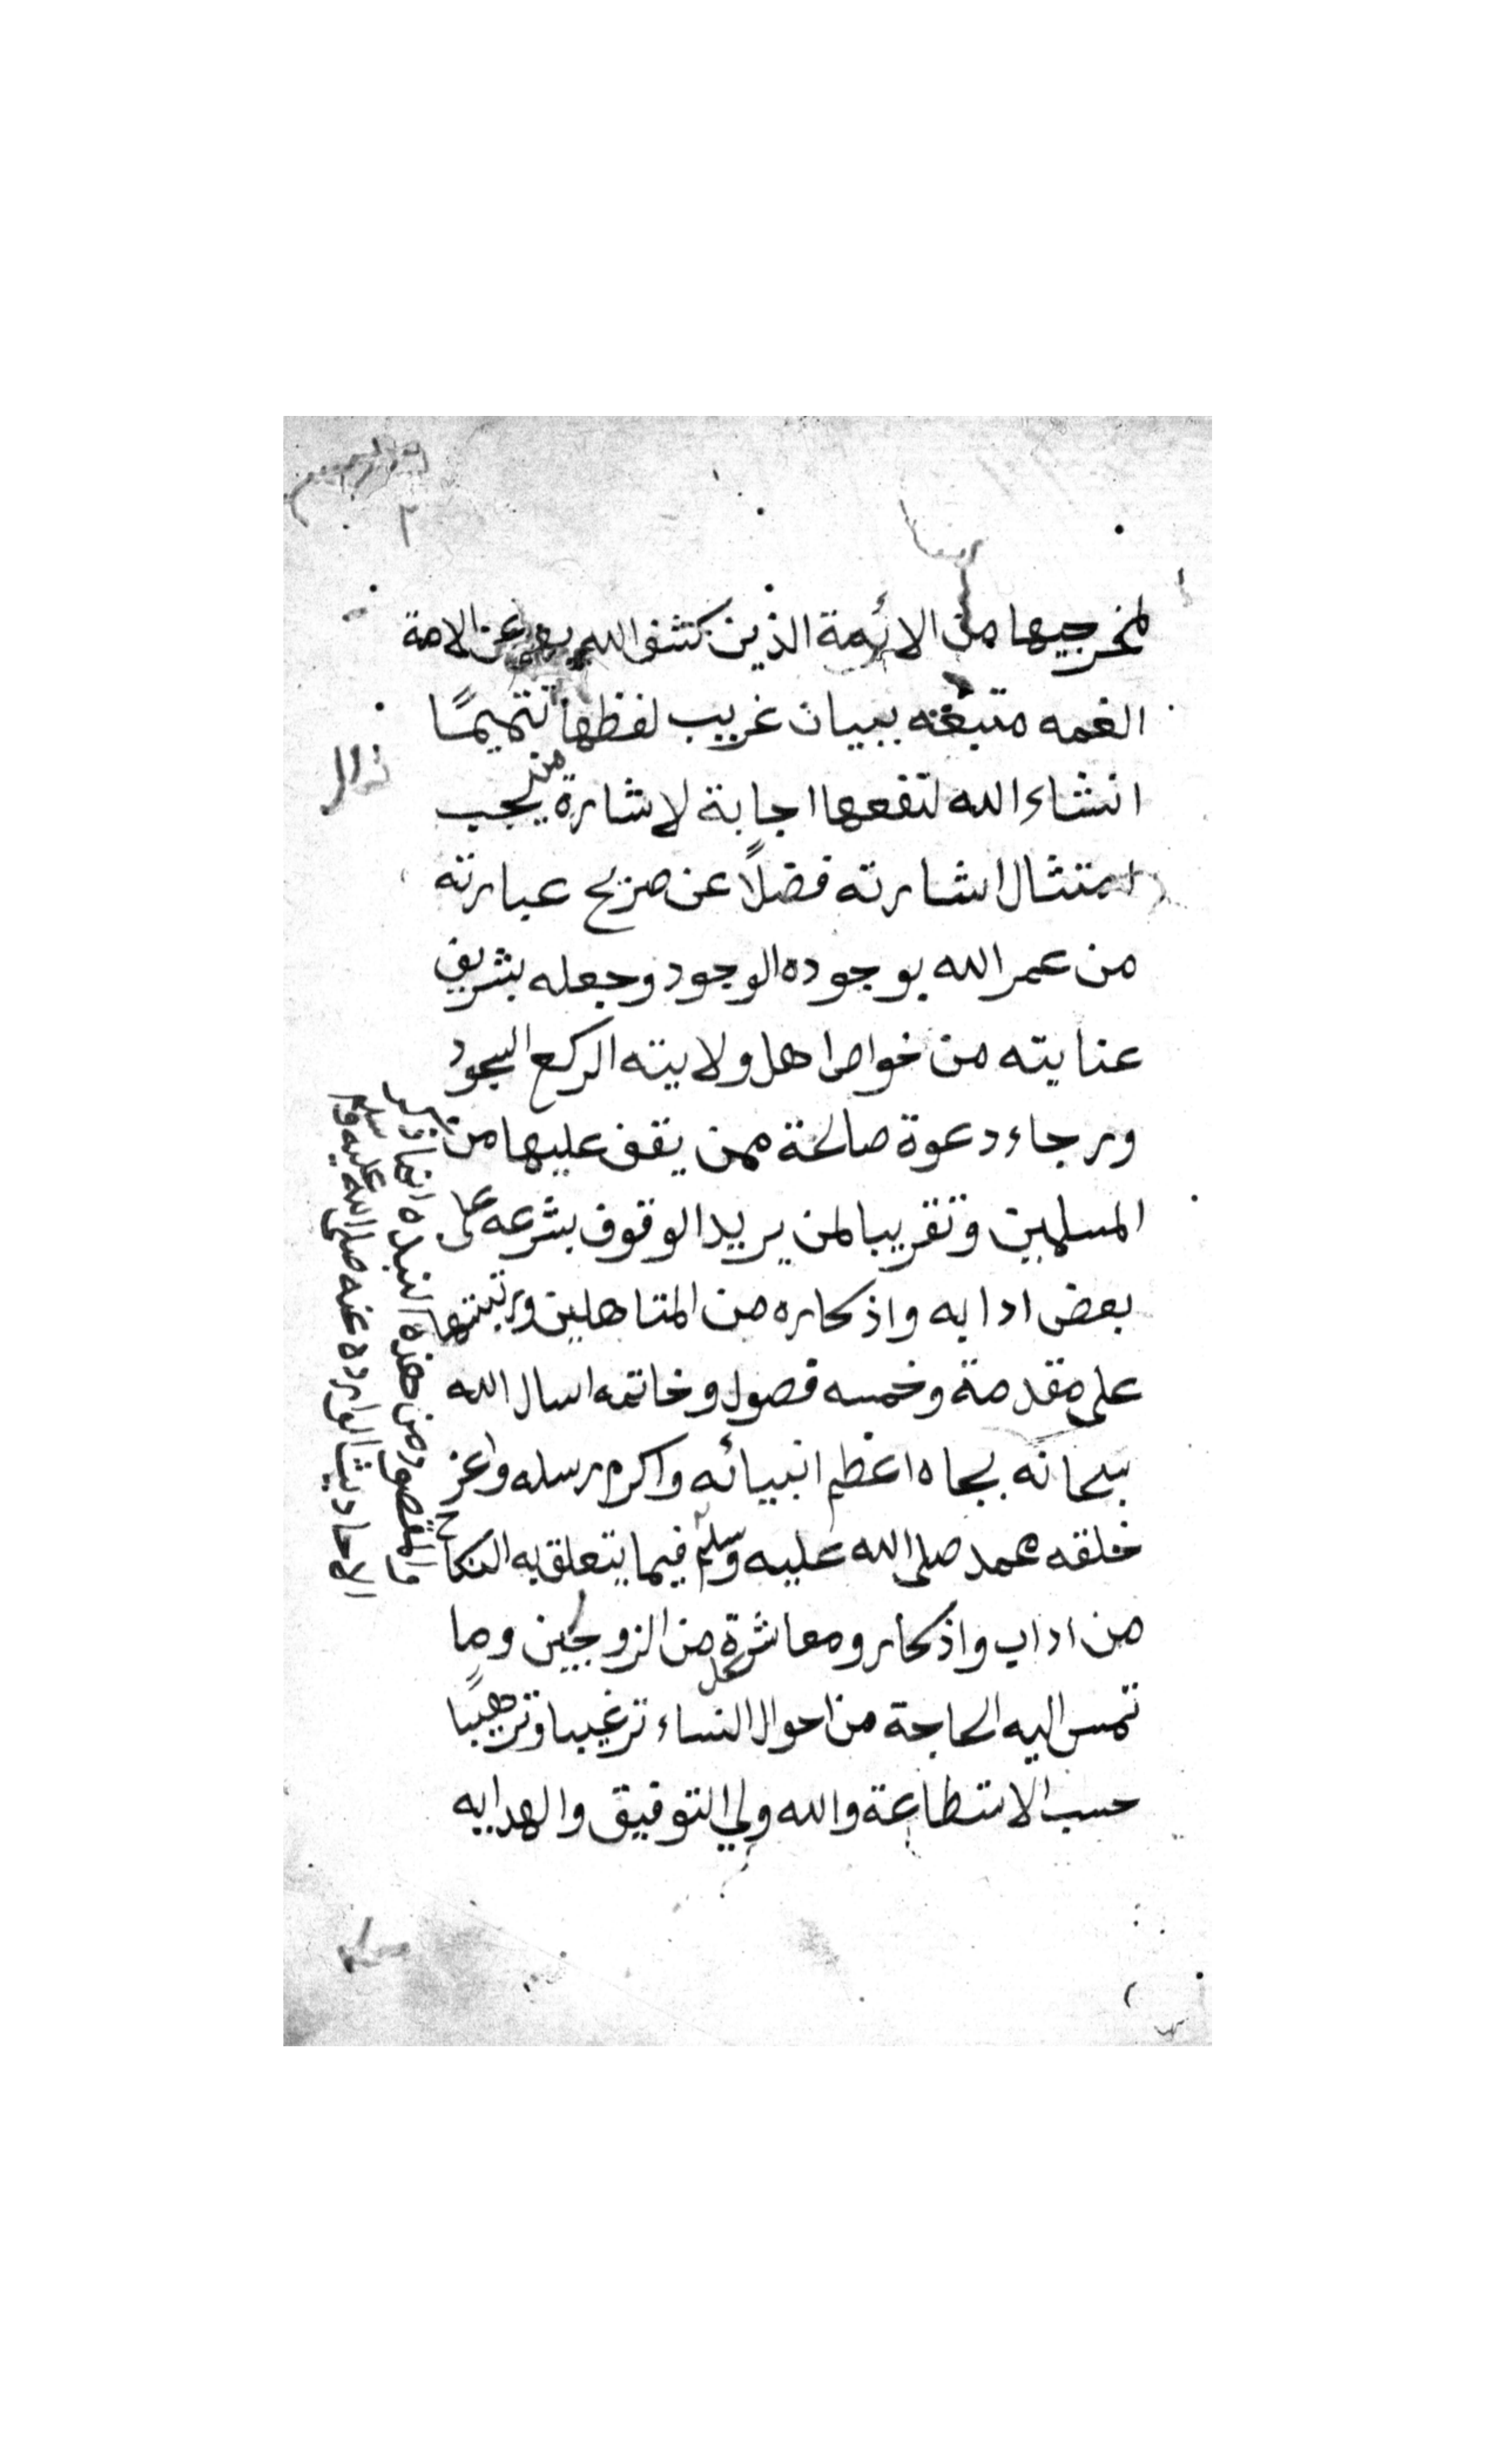 لمخرجيها من الائمة الذين كشف الله بهم عن الامة
الغمه متبعه ببيان غريب لفظها تتميمًا
انشاء الله لنفعها اجابة لاشارة من يجب
امتثال اشارته فضلًا عن صريح عبارته
من عمر الله بوجوده الوجود وجعله بشريف
عنايته من خواص اهل ولايته الركع السجود
ورجاء دعوة صالحة ممن يقف عليها من
المسلمين وتقريبا لمن يريد الوقوف بشرعه على
بعض ادابه واذكاره من المتاهلين ورتبتها
على مقدمة وخمسه فصول وخاتمه اسال الله
سبحانه بجاه اعظم انبيائه واكرم رسله واعز
خلقه محمد صلى الله عليه وسلم فيما يتعلق به النكاح
من اداب واذكار ومعاشرة كل من الزوجين وما
تمس اليه الحاجة من احوال النساء ترغيبا وترهيبًا
حسب الاستطاعة والله ولي التوفيق والهدايه
والمقصود من هذه النبذه انما ذكر
الاحاديث الوارده عنه صلى الله عليه وسلم